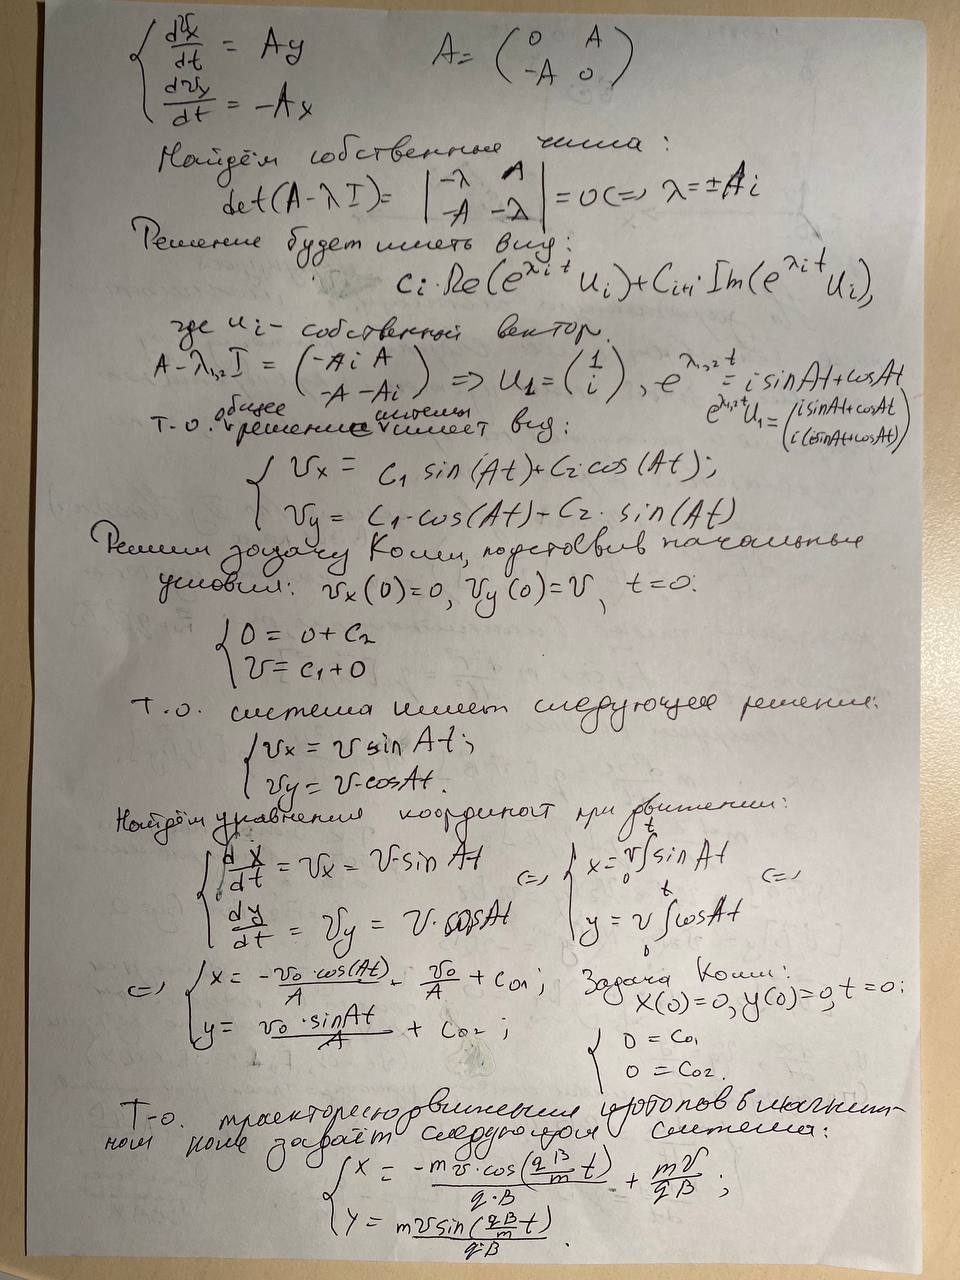 { dv_x/dt = Ay    A = ( 0 A ; -A 0 )
{ dv_y/dt = -Ax
Найдём собственные числа:
det(A-λI) = | -λ A ; -A -λ | = 0 <=> λ = ±Ai
Решение будет иметь вид:
C_i·Re(e^{λ_i t} u_i) + C_{i+1} Im(e^{λ_i t} u_i),
где u_i - собственный вектор.
A-λ_{1,2}I = ( -Ai A ; -A -Ai ) => u_1 = ( 1 ; i ), e^{λ_{1,2} t} = i sinAt + cosAt
e^{λ_{1,2} t} u_1 = ( i sinAt + cosAt ; i(i sinAt + cosAt) )
Т.о. общее решение системы имеет вид:
{ v_x = C_1 sin(At) + C_2 cos(At);
{ v_y = C_1·cos(At) - C_2·sin(At)
Решим задачу Коши, подставив начальные
условия: v_x(0)=0, v_y(0)=v, t=0:
{ 0 = 0 + C_2
{ v = C_1 + 0
Т.о. система имеет следующее решение:
{ v_x = v sin At;
{ v_y = v·cosAt.
Найдём уравнения координат при движении:
{ dx/dt = v_x = v·sin At <=> { x = v ∫_0^t sin At <=>
{ dy/dt = v_y = v·cosAt { y = v ∫_0^t cosAt
<=> { x = -v_0·cos(At)/A - v_0/A + C_01; Задача Коши:
x(0)=0, y(0)=0, t=0:
{ y = v_0·sinAt/A + C_02;
{ 0 = C_01
{ 0 = C_02.
Т.о. движения изотопов в магнит-
ном поле задаёт следующая система:
{ x = -mv·cos(qB/m t)/q·B + mv/qB;
{ y = mv sin(qB/m t)/qB.